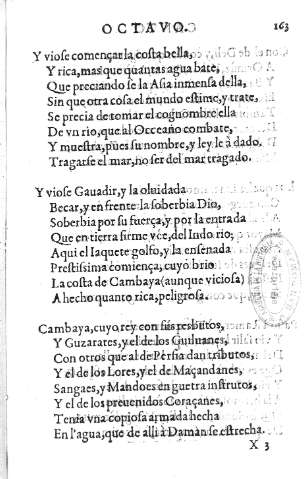 OCTAVO. 163
Y viose començar la costa bella,
Y rica, mas que quantas agua bate,
Que preciando se la Asia inmensa della,
Sin que otra cosa el mundo estime, y trate,
Se precia de tomar el cognombre ella
De vn rio, que al Occeano combate,
Y muestra, pues su nombre, y ley le à dado.
Tragarse el mar, no ser del mar tragado.
Y viose Gauadir, y la oluidada
Becar, y en frente la soberbia Dio,
Soberbia por su fuerça, y por la entrada
Que en tierra firme vee, del Indo rio;
Aqui el Iaquete golfo, y la ensenada
Prestissima comiença, cuyo brio
La costa de Cambaya (aunque viciosa)
A hecho quanto rica, peligrosa.
Cambaya, cuyo rey con sus resbutos,
Y Guzarates, y el de los Guiluanes,
Con otros que al de Persia dan tributos,
Y el de los Lores, y el de Maçandanes,
Sangaes, y Mandoes en guerra instrutos,
Y el de los preuenidos Coraçanes,
Tenia vna copiosa armada hecha
En l'agua, que de alli à Daman se estrecha.
X 3